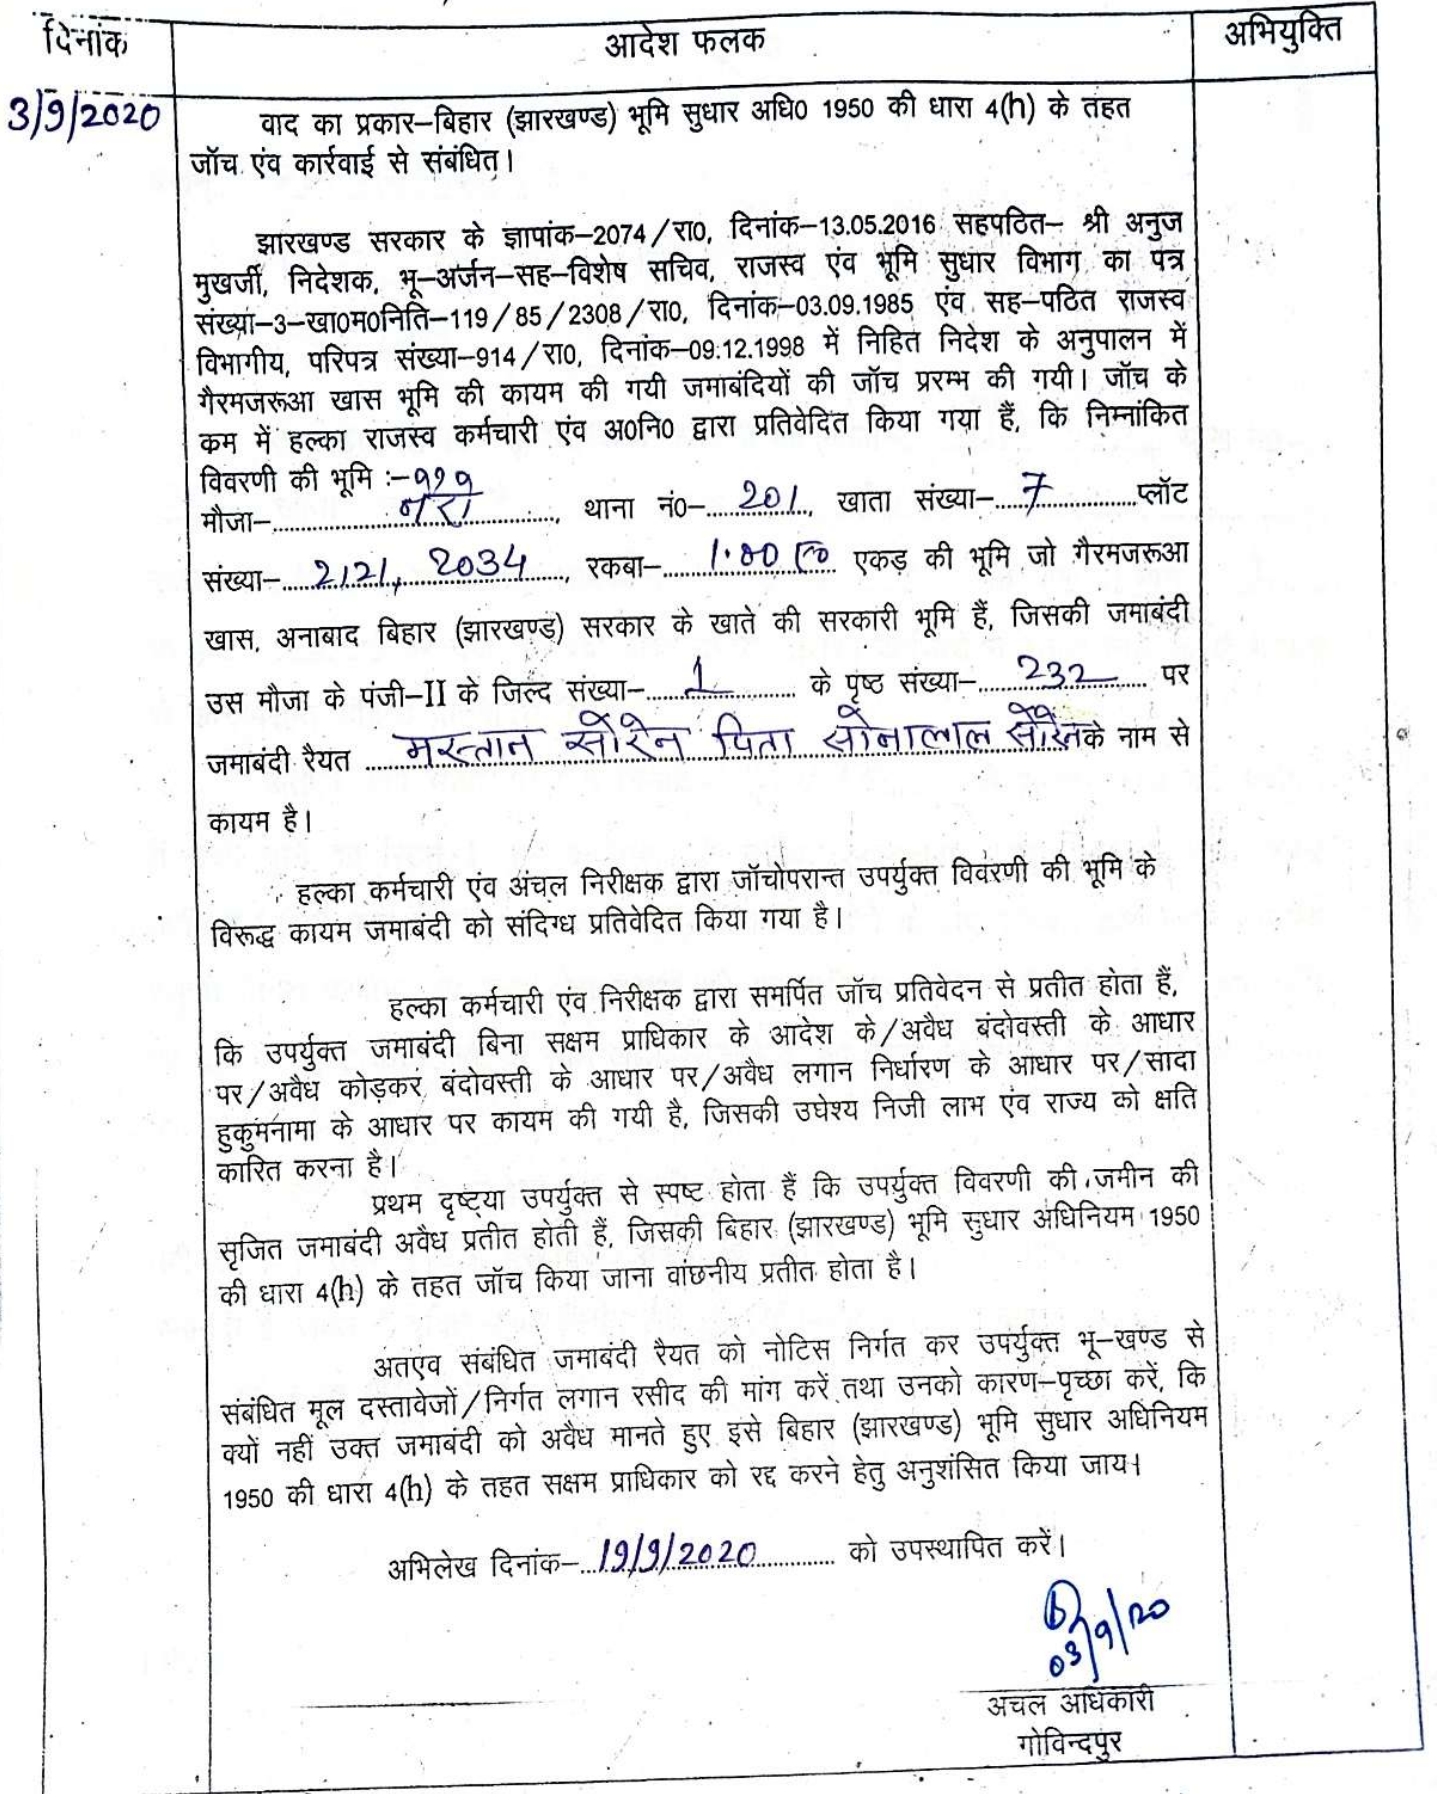 दिनांक
आदेश फलक
अभियुक्ति
3/9/2020
वाद का प्रकार–बिहार (झारखण्ड) भूमि सुधार अधि0 1950 की धारा 4(h) के तहत
जॉच एंव कार्रवाई से संबंधित।
झारखण्ड सरकार के ज्ञापांक–2074/रा0, दिनांक–13.05.2016 सहपठित– श्री अनुज
मुखर्जी, निदेशक, भू–अर्जन–सह–विशेष सचिव, राजस्व एंव भूमि सुधार विभाग का पत्र
संख्या–3–खा0म0निति–119/85/2308/रा0, दिनांक–03.09.1985 एंव सह–पठित राजस्व
विभागीय, परिपत्र संख्या–914/रा0, दिनांक–09.12.1998 में निहित निदेश के अनुपालन में
गैरमजरूआ खास भूमि की कायम की गयी जमाबंदियों की जॉच प्ररम्भ की गयी। जॉच के
कम में हल्का राजस्व कर्मचारी एंव अ0नि0 द्वारा प्रतिवेदित किया गया हैं, कि निम्नांकित
विवरणी की भूमि :–
मौजा–............, थाना नं0– 201, खाता संख्या– 7 प्लॉट
संख्या– 2121, 2034, रकबा– 1.00 एकड़ की भूमि जो गैरमजरूआ
खास, अनाबाद बिहार (झारखण्ड) सरकार के खाते की सरकारी भूमि हैं, जिसकी जमाबंदी
उस मौजा के पंजी–II के जिल्द संख्या– 1 के पृष्ठ संख्या– 232 पर
जमाबंदी रैयत मस्तान सोरेन पिता सोनालाल सोरेन के नाम से
कायम है।
हल्का कर्मचारी एंव अंचल निरीक्षक द्वारा जॉचोपरान्त उपर्युक्त विवरणी की भूमि के
विरूद्ध कायम जमाबंदी को संदिग्ध प्रतिवेदित किया गया है।
हल्का कर्मचारी एंव निरीक्षक द्वारा समर्पित जॉच प्रतिवेदन से प्रतीत होता हैं,
कि उपर्युक्त जमाबंदी बिना सक्षम प्राधिकार के आदेश के/अवैध बंदोवस्ती के आधार
पर/अवैध कोड़कर बंदोवस्ती के आधार पर/अवैध लगान निर्धारण के आधार पर/सादा
हुकुमनामा के आधार पर कायम की गयी है, जिसकी उघेश्य निजी लाभ एंव राज्य को क्षति
कारित करना है।
प्रथम दृष्ट्या उपर्युक्त से स्पष्ट होता हैं कि उपर्युक्त विवरणी की जमीन की
सृजित जमाबंदी अवैध प्रतीत होती हैं, जिसकी बिहार (झारखण्ड) भूमि सुधार अधिनियम 1950
की धारा 4(h) के तहत जॉच किया जाना वांछनीय प्रतीत होता है।
अतएव संबंधित जमाबंदी रैयत को नोटिस निर्गत कर उपर्युक्त भू–खण्ड से
संबंधित मूल दस्तावेजों/निर्गत लगान रसीद की मांग करें तथा उनको कारण–पृच्छा करें, कि
क्यों नहीं उक्त जमाबंदी को अवैध मानते हुए इसे बिहार (झारखण्ड) भूमि सुधार अधिनियम
1950 की धारा 4(h) के तहत सक्षम प्राधिकार को रद्द करने हेतु अनुशंसित किया जाय।
अभिलेख दिनांक– 19/9/2020 को उपस्थापित करें।
03/9/20
अचल अधिकारी
गोविन्दपुर